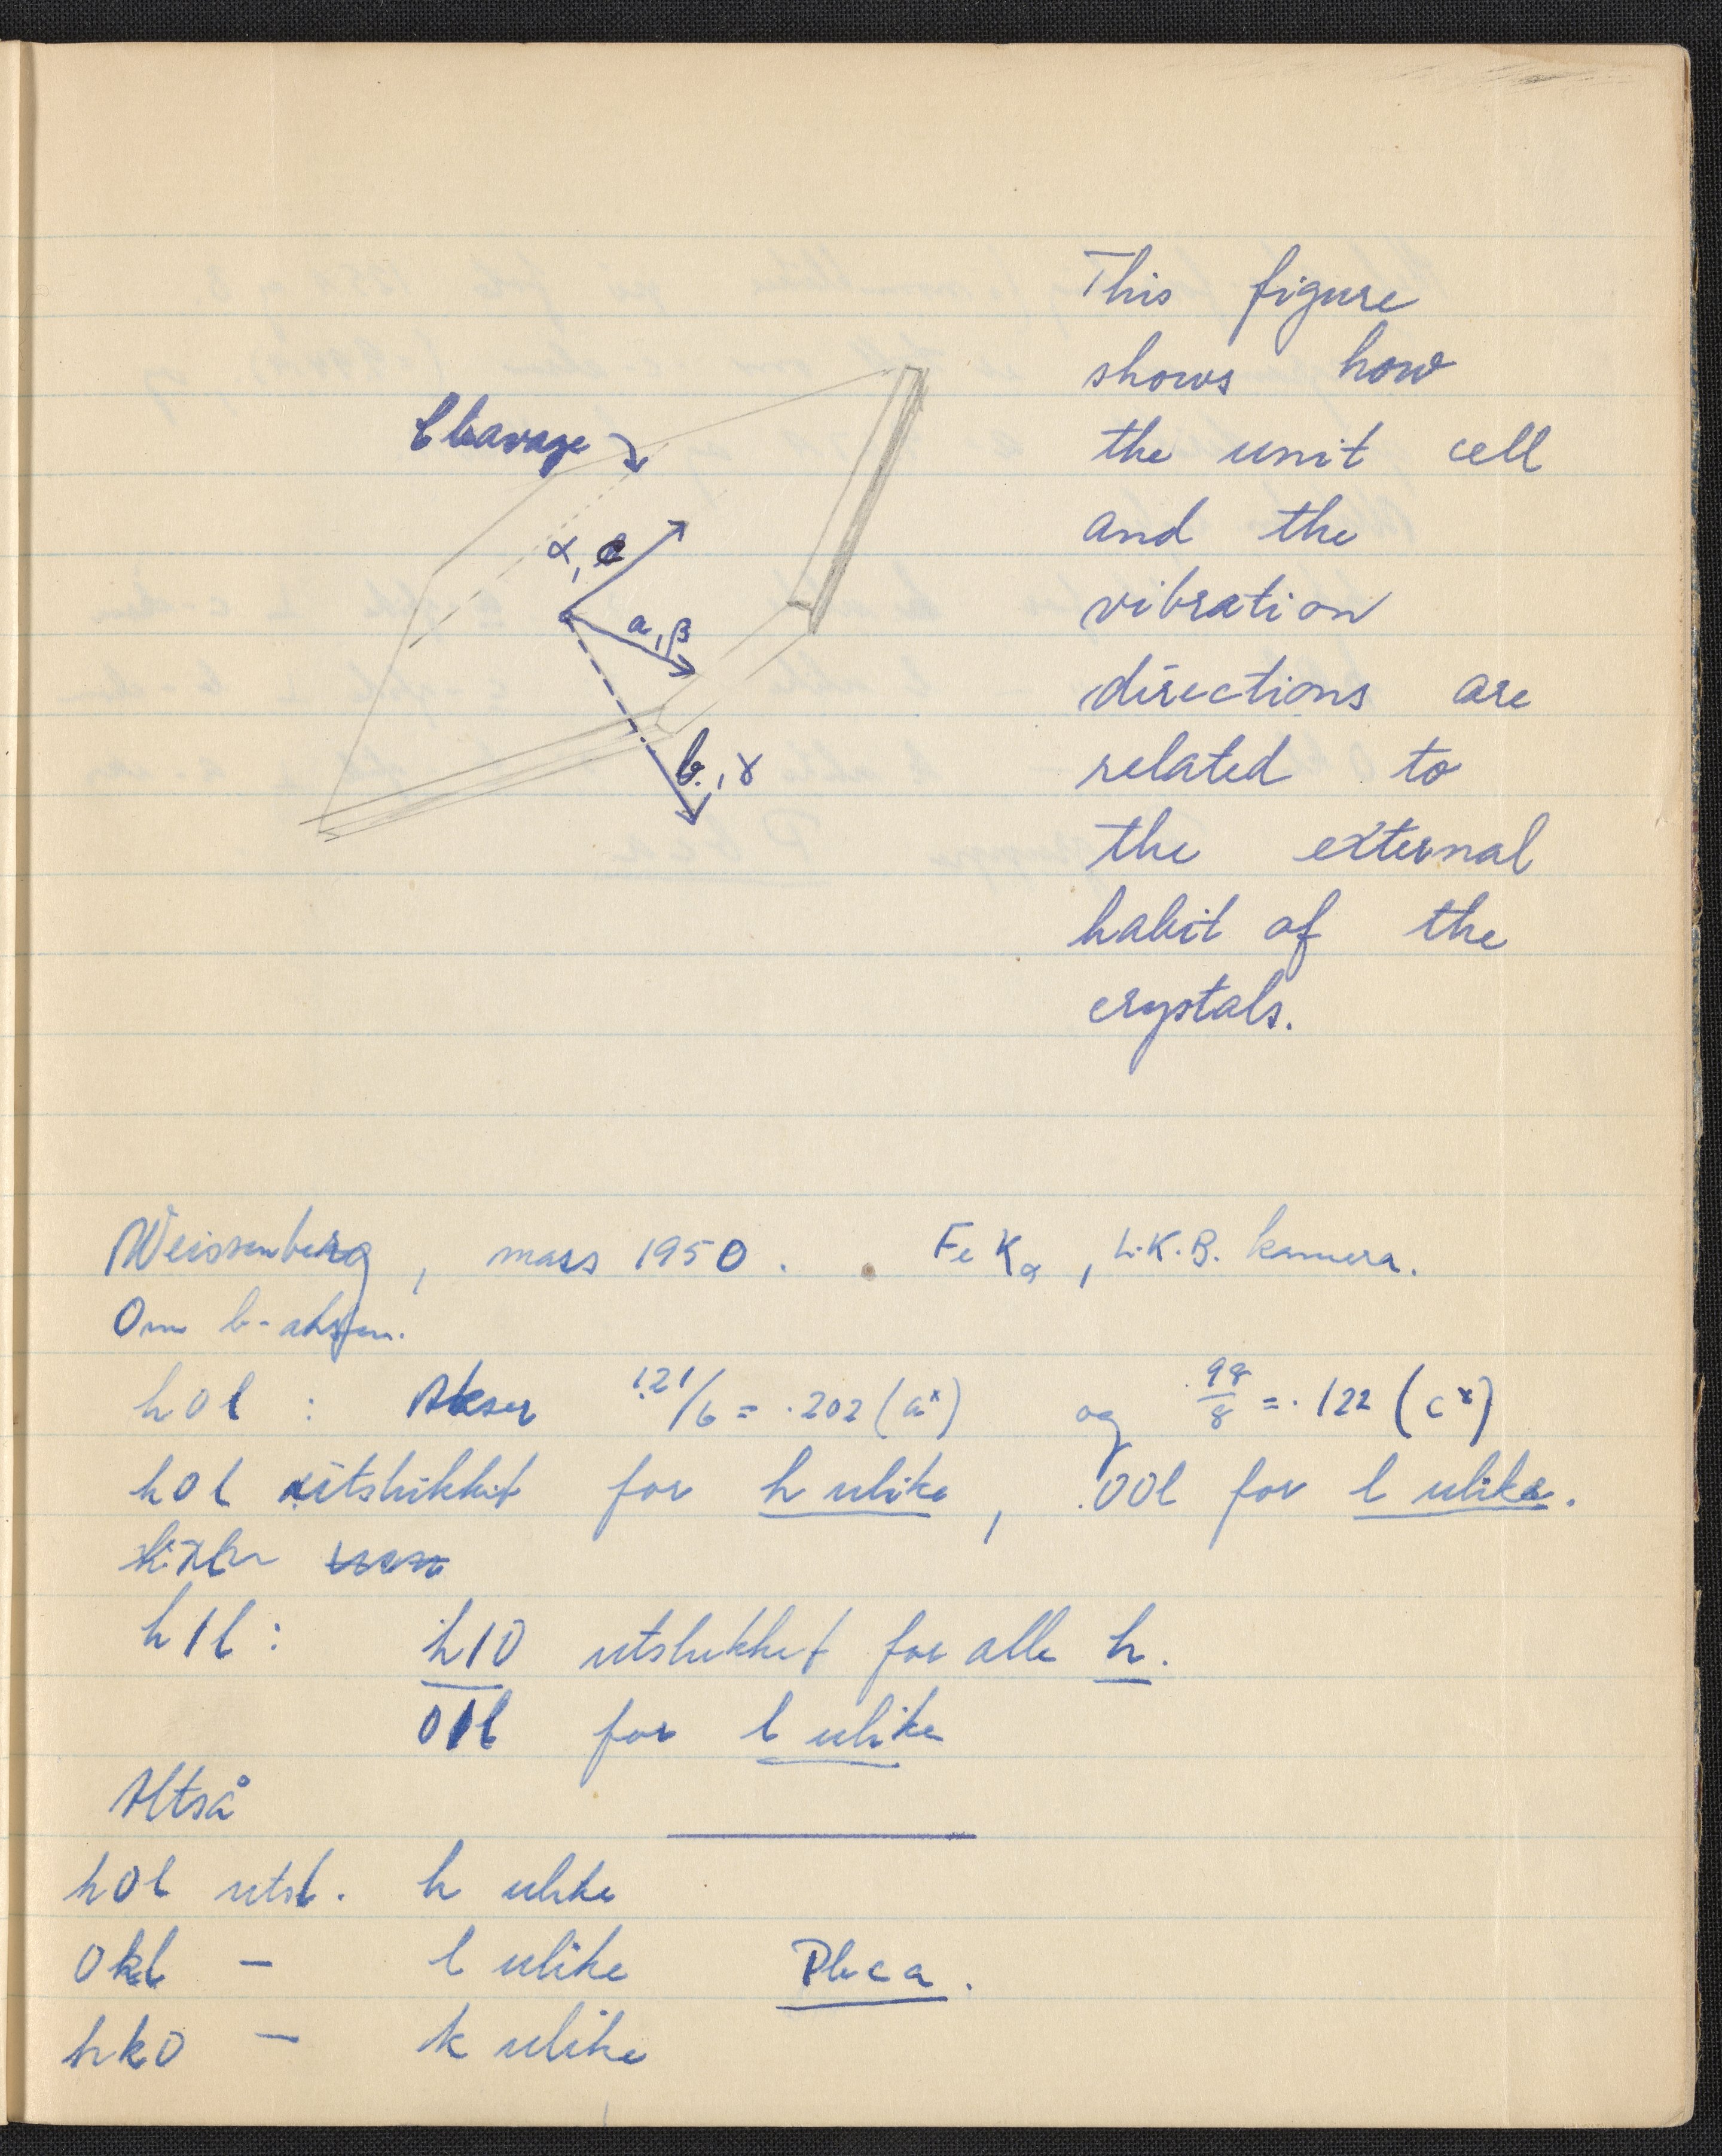 This figure
shows how
the unit cell
and the
vibration
directions are
related to
the external
habit of the
crystals.
Cleavage
α, c
a, β
b, γ
Weissenberg, mars 1950. Fe Kα, L.K.B. kamera.
Om b-aksen.
h0l : Akser 1.21/6 = .202 (a*) og .98/8 = .122 (c*)
h0l utslukket for h ulike, 00l for l ulike.
h1l: h10 utslukket for alle h.
01l for l ulike
Altså
h0l utsl. h ulike
0kl — l ulike Pbca.
hk0 — k ulike